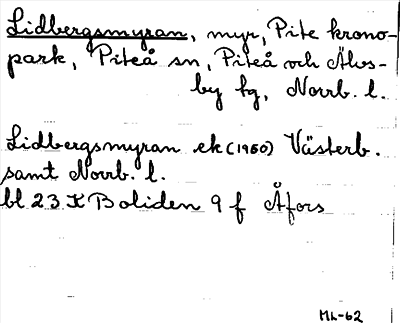 Lidbergsmyran, myr, Pite krono-
park, Piteå sn, Piteå och Älvs-
by tg, Norrb. l.
Lidbergsmyran ek (1960) Västerb.
samt Norrb. l.
bl 23 K Boliden 9 f Åfors
ML-62